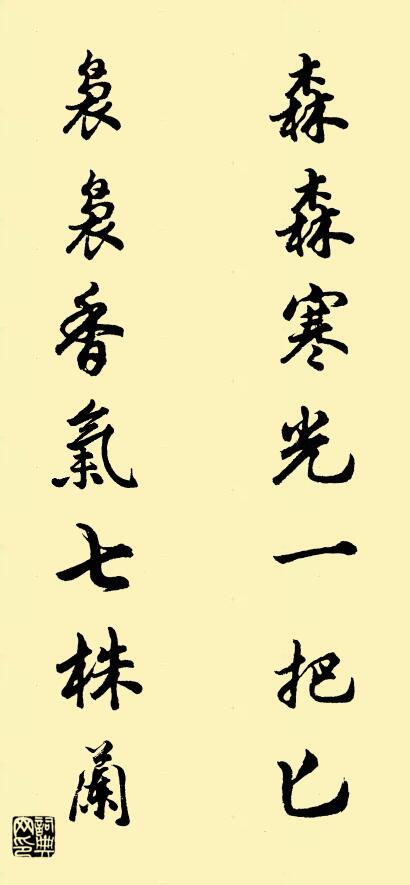 森森寒光一把匕
袅袅香氣七株蘭
詞典网印